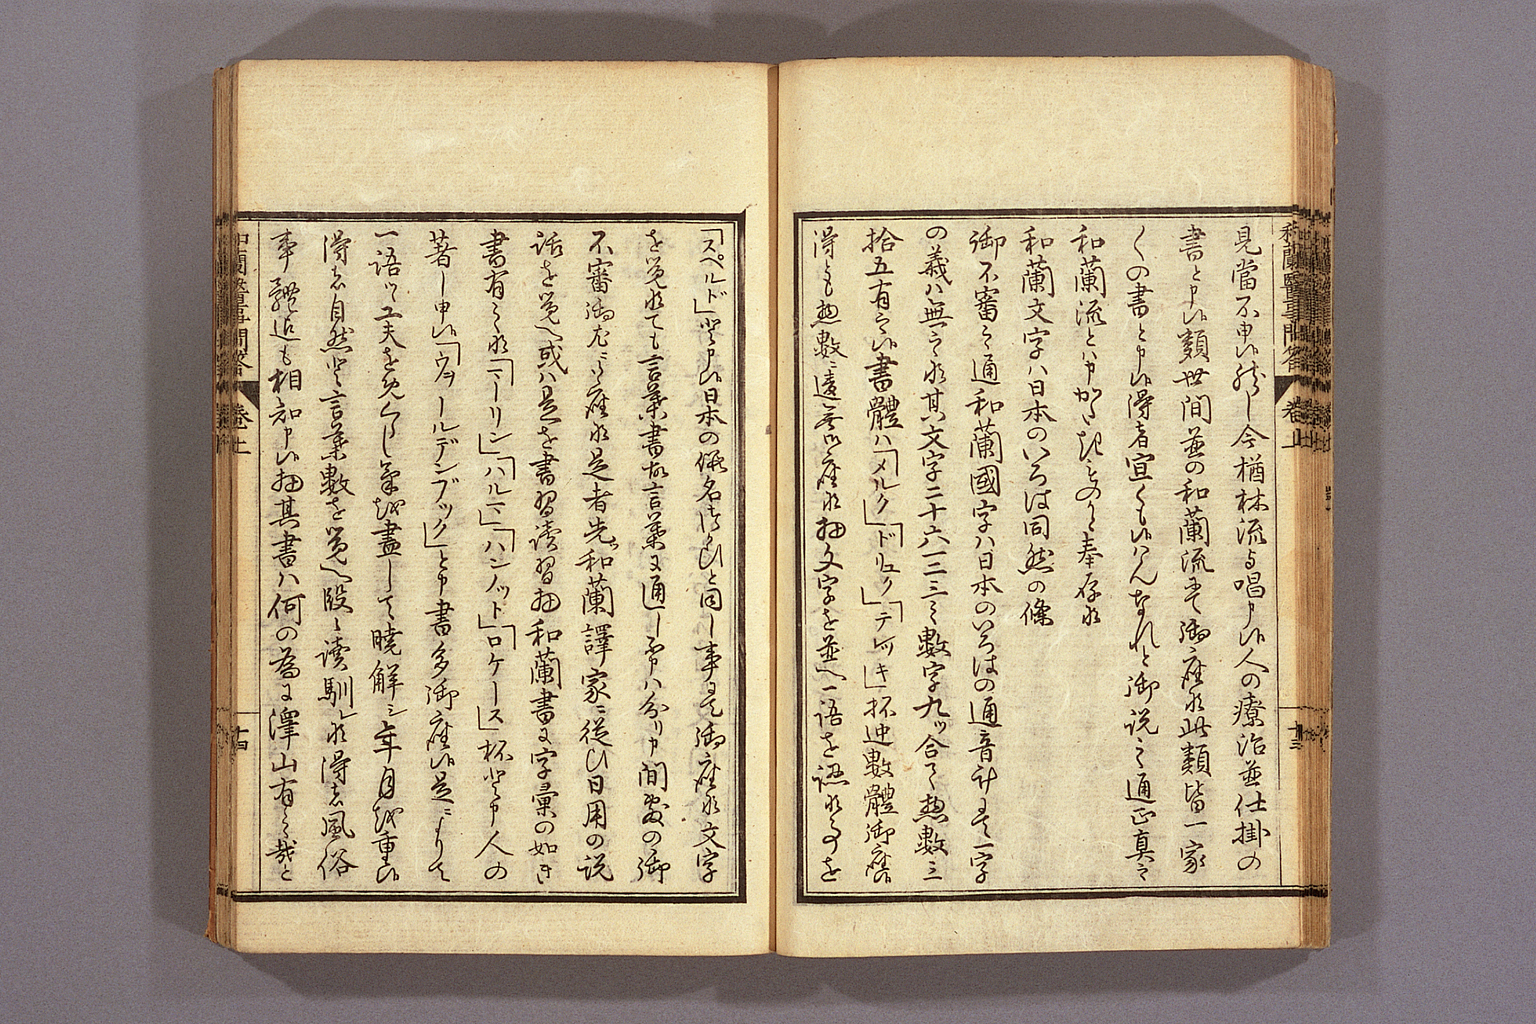 和蘭醫事問答 卷上 十三
見當不申候然し今楢林流与唱申候人の療治並仕掛の
書と申候類世間並の和蘭流にて御座候此類皆一家
くの書と申候得者宜くも候はんなれと御説之通正真之
和蘭流とハ申かたきものと奉存候
和蘭文字ハ日本のいろは同然の條
御不審之通和蘭國字ハ日本のいろはの通音計にて一字
の義ハ無之候其文字二十六一二三之數字九ッ合て惣數三
拾五有之候書體ハ「メルク」「ドリュク」「テレッキ」杯迚數體御座候
得とも惣數ニ違無御座候扨文字を並へ一語を認候事を
「スペルド」と申候日本の假名つかひと同し事にて御座候文字
を覚候ても言葉書故言葉に通し不申ハ分り申間敷の御
不審御尤ニ御座候是者先和蘭譯家ニ従ひ日用の説
話を覚へ或ハ是を書習讀習扨和蘭書に字彙の如き
書有之候「マーリン」「ハルマ」「ハンノット」「ロケース」杯と申人の
著し申候「ウヲールデンブック」と申書多御座候是ニよりて
一語ツヽ工夫を免くらし氣を盡して暁解シ年月を重候
得者自然と言葉數を覚へ段々讀馴レ候得者風俗
事體迄も相知申候扨其書ハ何の為に澤山有之哉と
和蘭醫事問答 卷上 十四